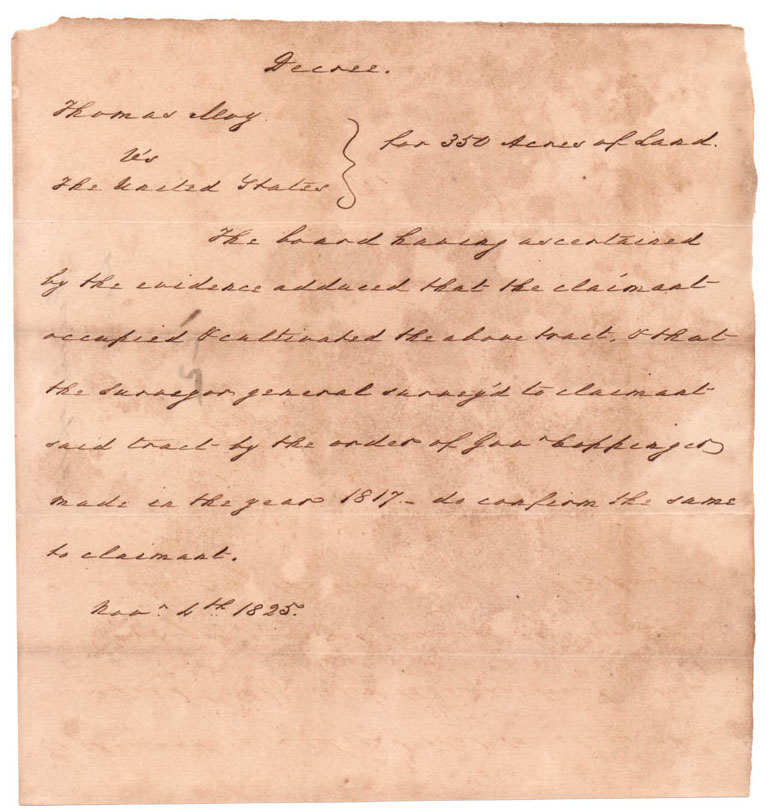 Decree.
Thomas Moy
Vs
The United States
for 350 Acres of Land.
The board having ascertained
by the evidence adduced that the claimant
occupied & cultivated the above tract, & that
the surveyor general survey'd to claimant
said tract by the order of Govr Coppinger
made in the year 1817 - do confirm the same
to claimant.
Novr 4th 1825.